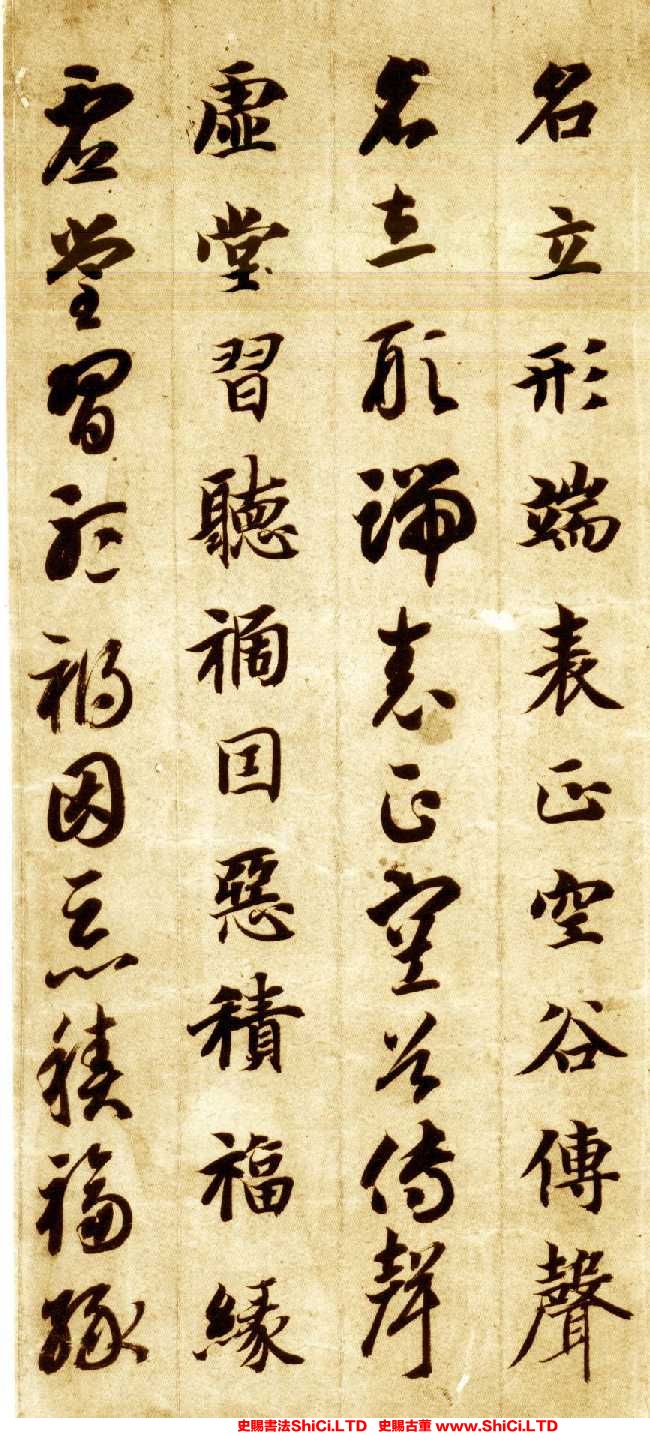 名立形端表正空谷傳聲
名立形端表正空谷傳聲
虛堂習聽禍因惡積福緣
虛堂習聽禍因惡積福緣
史賜書法ShiCi.LTD 史賜古董 www.ShiCi.LTD